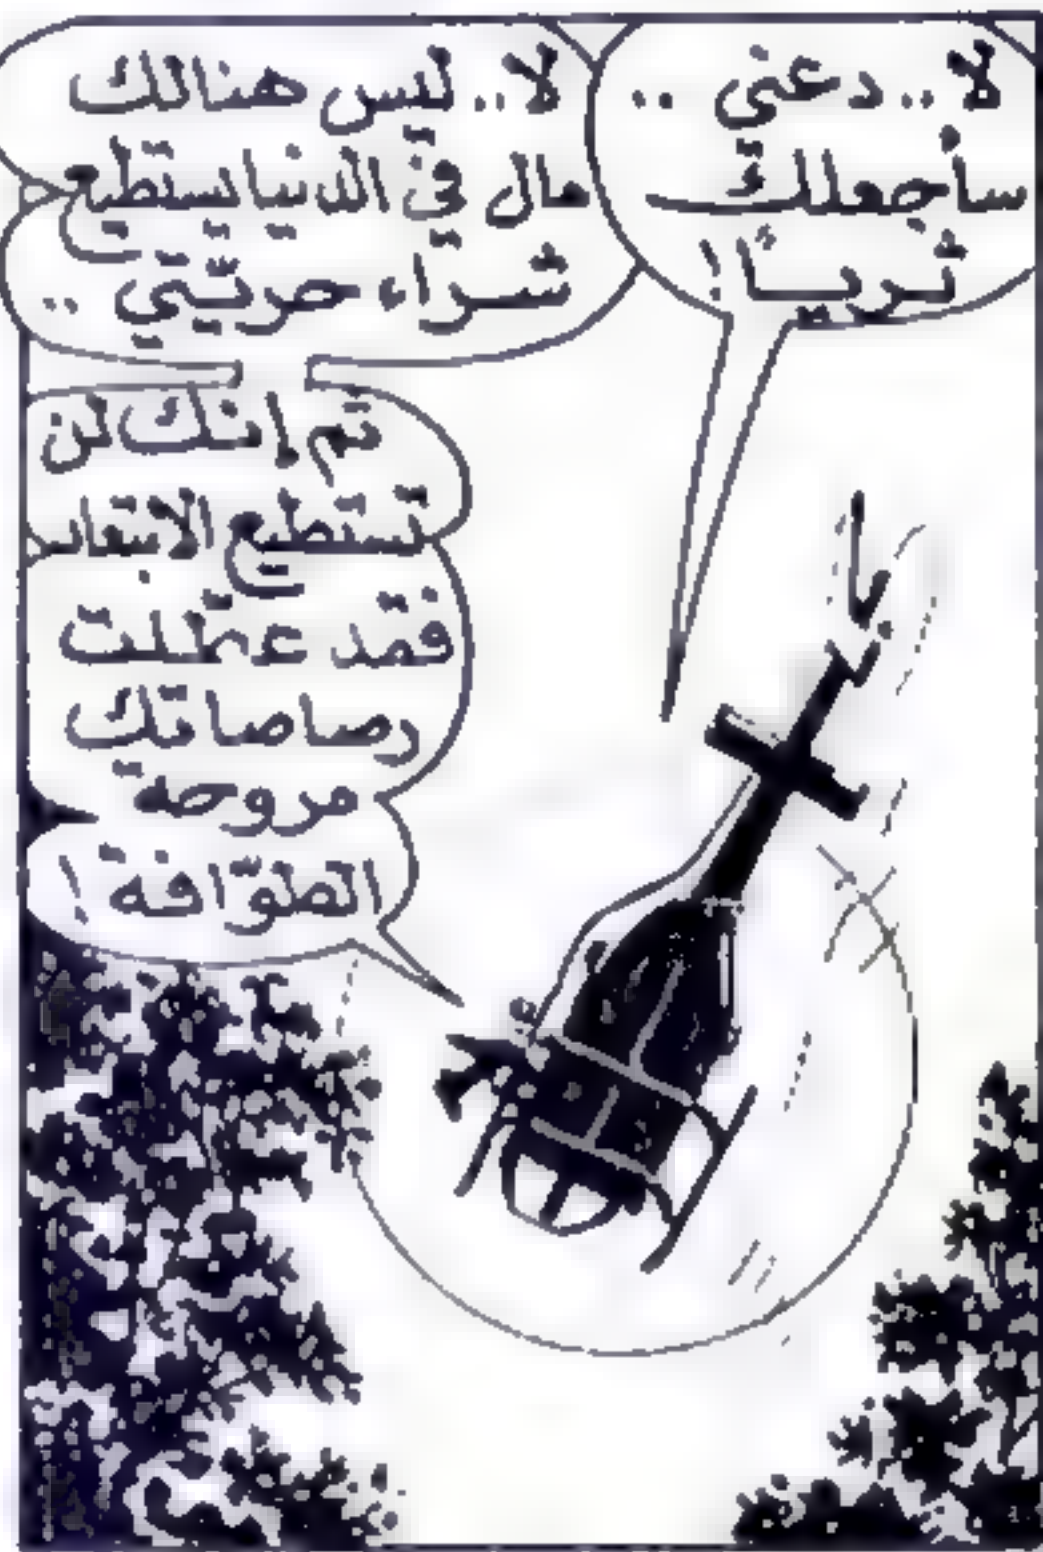 لا.. دعني ..
سأجعلك
ثريًا!
لا.. ليس هنالك
مال في الدنيا يستطيع
شراء حريّتي ..
ثم إنك لن
تستطيع الابتعاد
فقد عطّلت
رصاصاتك
مروحة
الطوّافة!